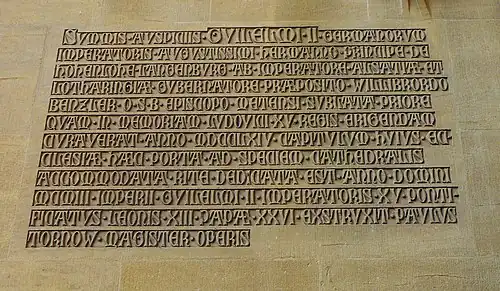 SVMMIS · AVSPICIIS · GVILELMI · II · GERMANORVM
IMPERATORIS · AVGVSTISSIMI · HERMANNO · PRINCIPE · DE
HOHENLOHE · LANGENBVRG · AB · IMPERATORE · ALSATIÆ · ET
LOTHARINGIÆ · GVBERNATORE · PRÆPOSITO · WILLIBRORDO
BENZLER · O · S · B · EPISCOPO · METENSI · SVBLATA · PRIORE
QVAM · IN · MEMORIAM · LVDOVICI · XV · REGIS · ERIGENDAM
CVRAVERAT · ANNO · MDCCLXIV · CAPITVLVM · HVIVS · EC-
CLESIÆ · HÆC · PORTA · AD · SPECIEM · CATHEDRALIS
ACCOMMODATA · RITE · DEDICATA · EST · ANNO · DOMINI
MCMIII · IMPERII · GVILELMI · II · IMPERATORIS · XV · PONTI-
FICATVS · LEONIS · XIII · PAPÆ · XXVI · EXSTRVXIT · PAVLVS
TORNOW · MAGISTER · OPERIS